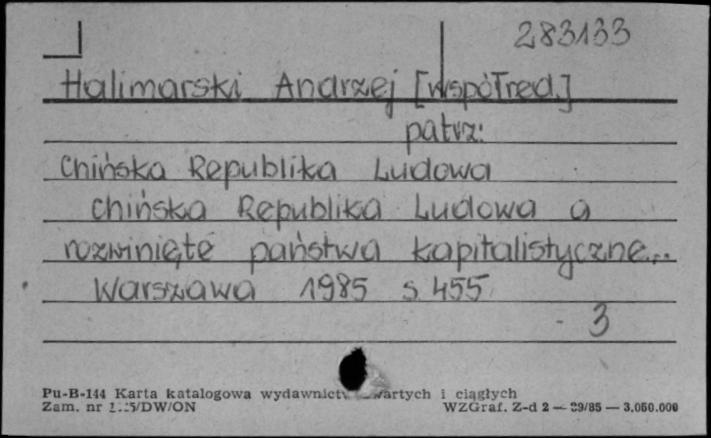 283133
Halimarski Andrzej [współred.]
patrz:
Chińska Republika Ludowa
Chińska Republika Ludowa a
rozwinięte państwa kapitalistyczne...
Warszawa 1985 s. 455
3
Pu-B-144 Karta katalogowa i ciągłych
Zam. nr WZGraf. Z-d 2 — 29/85 — 3.050.000